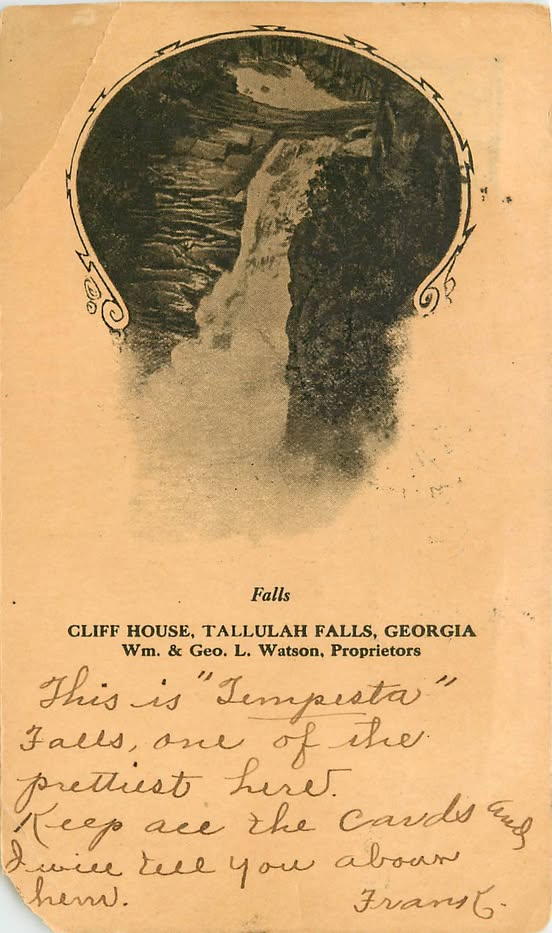 Falls
CLIFF HOUSE, TALLULAH FALLS, GEORGIA
Wm. & Geo. L. Watson, Proprietors
This is "Tempesta"
Falls, one of the
prettiest here.
Keep all the cards and
I will tell you about
hem.
Frank.